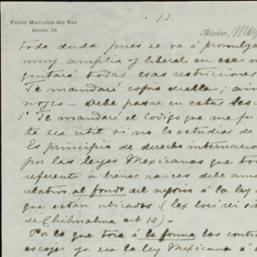 Pablo Martinez del Rio
13
toda duda pues se va á promulgar
muy amplia y liberal en ese
quitará todas esas restricciones
Te mandaré copia de ella;
debe pasar en estas
5º Te mandaré el Codigo que me
sea util si no lo estudias de
Es principio de derecho
por las leyes Mexicanas que
referente á bienes raices debe
al fondo del negocio á la ley
que están ubicados (lex loci
de Chihuahua art 18).-
Por lo que toca á la forma los
escoger ya sea la ley Mexicana ó